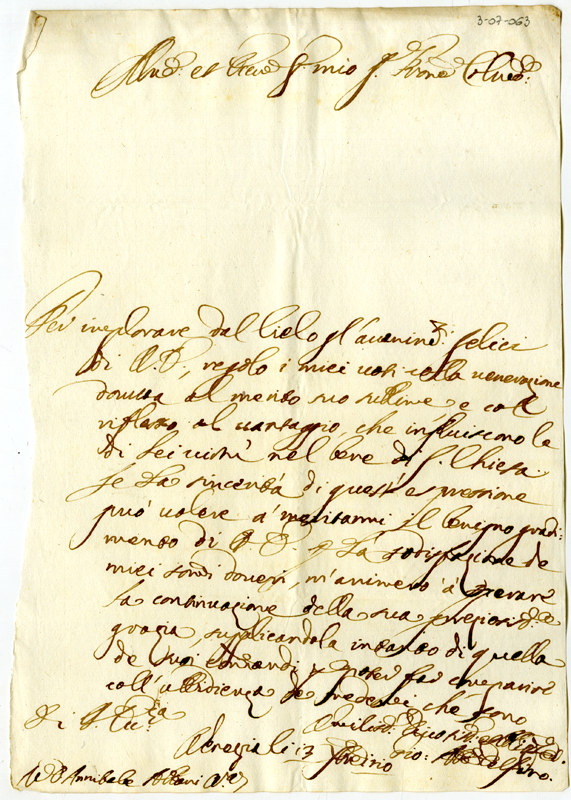 3-07-063
et mio
Per implorare dal Cielo gl'avenim.ti felici
di V.E., regolo i miei voti colla veneratione
douuta al merito suo sublime, e coll
riflesso al vantaggio, che influiscono le
di Lei virtù nel bene di S. Chiesa.
Se la sincerità di quest'espressione
può valere a meritarmi il benigno gradi-
mento di V.E. p la sodisfazione de
miei doveri, m'animerò à sperare
la continuazione della sua
grazia, supplicandola intanto di quella
de suoi comandi p poter far comparire
coll'ubbidienza de medemi, che sono
Di V. Ecc.za
Venezia li 13
Annibale Albani